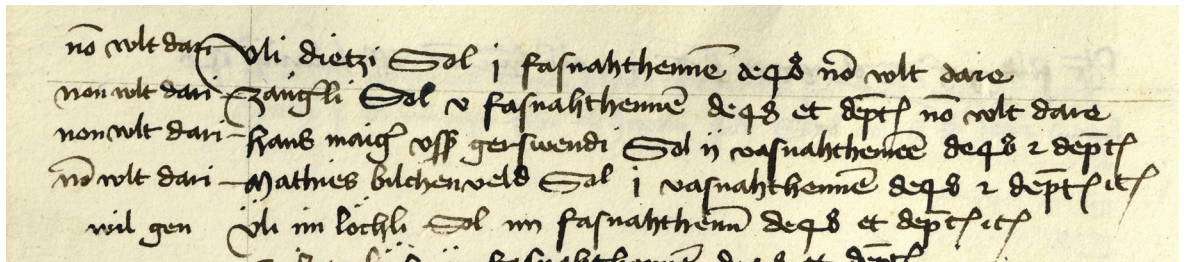 nō wlt dari Vli dietzi Sol j fasnahthennē deqb nō wlt dare
non wlt dari – zängli Sol v fasnahthennē deqb et dept nō wlt dare
non wlt dari – hans maig vff gerswendi Sol ij vasnahthennē deqb 2 dept
nō wlt dari – Mathies bilchenveld Sol j vasnahthennē deqb 2 dept
wil gen Üli im löchli Sol iiij fasnahthenn deqb et dept